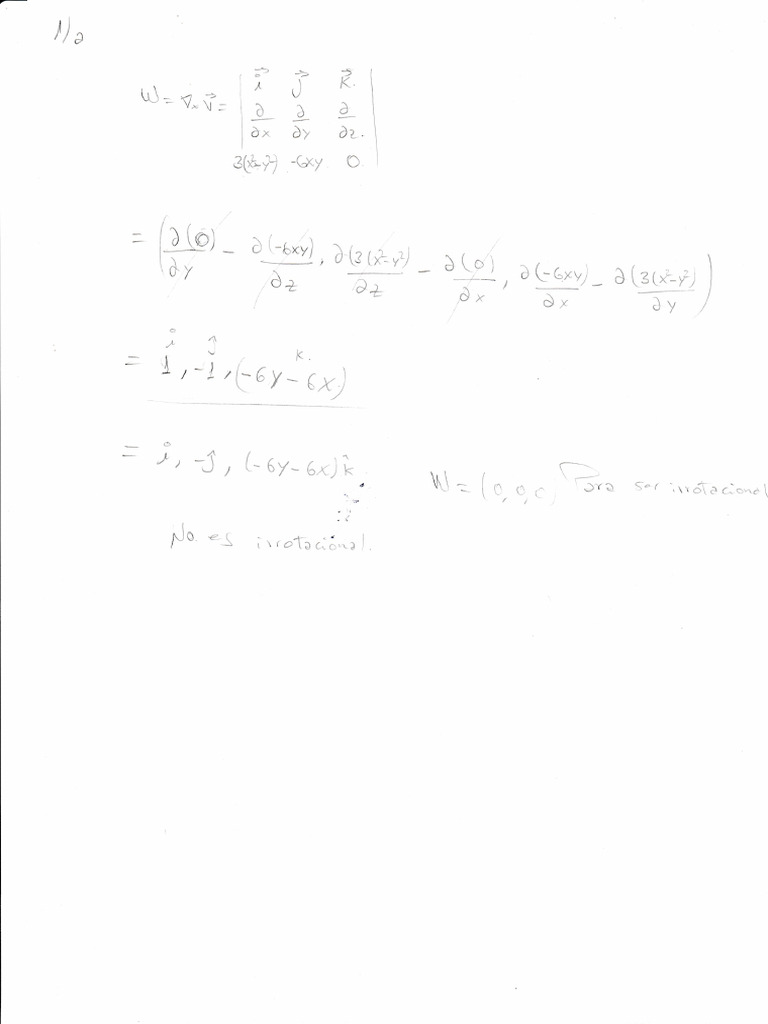 1/a
W = ∇ₓ V⃗ = | i⃗ j⃗ k⃗ |
∂/∂x ∂/∂y ∂/∂z.
3(x²-y²) -6xy 0
= (∂(0)/∂y - ∂(-6xy)/∂z, ∂(3(x²-y²)/∂z - ∂(0)/∂x, ∂(-6xy)/∂x - ∂(3(x²-y²)/∂y)
i j k.
= 1, -1, (-6y - 6x)
= i, -j, (-6y-6x)k̂
W = (0,0,0) Para ser irrotacional
No. es irrotacional.